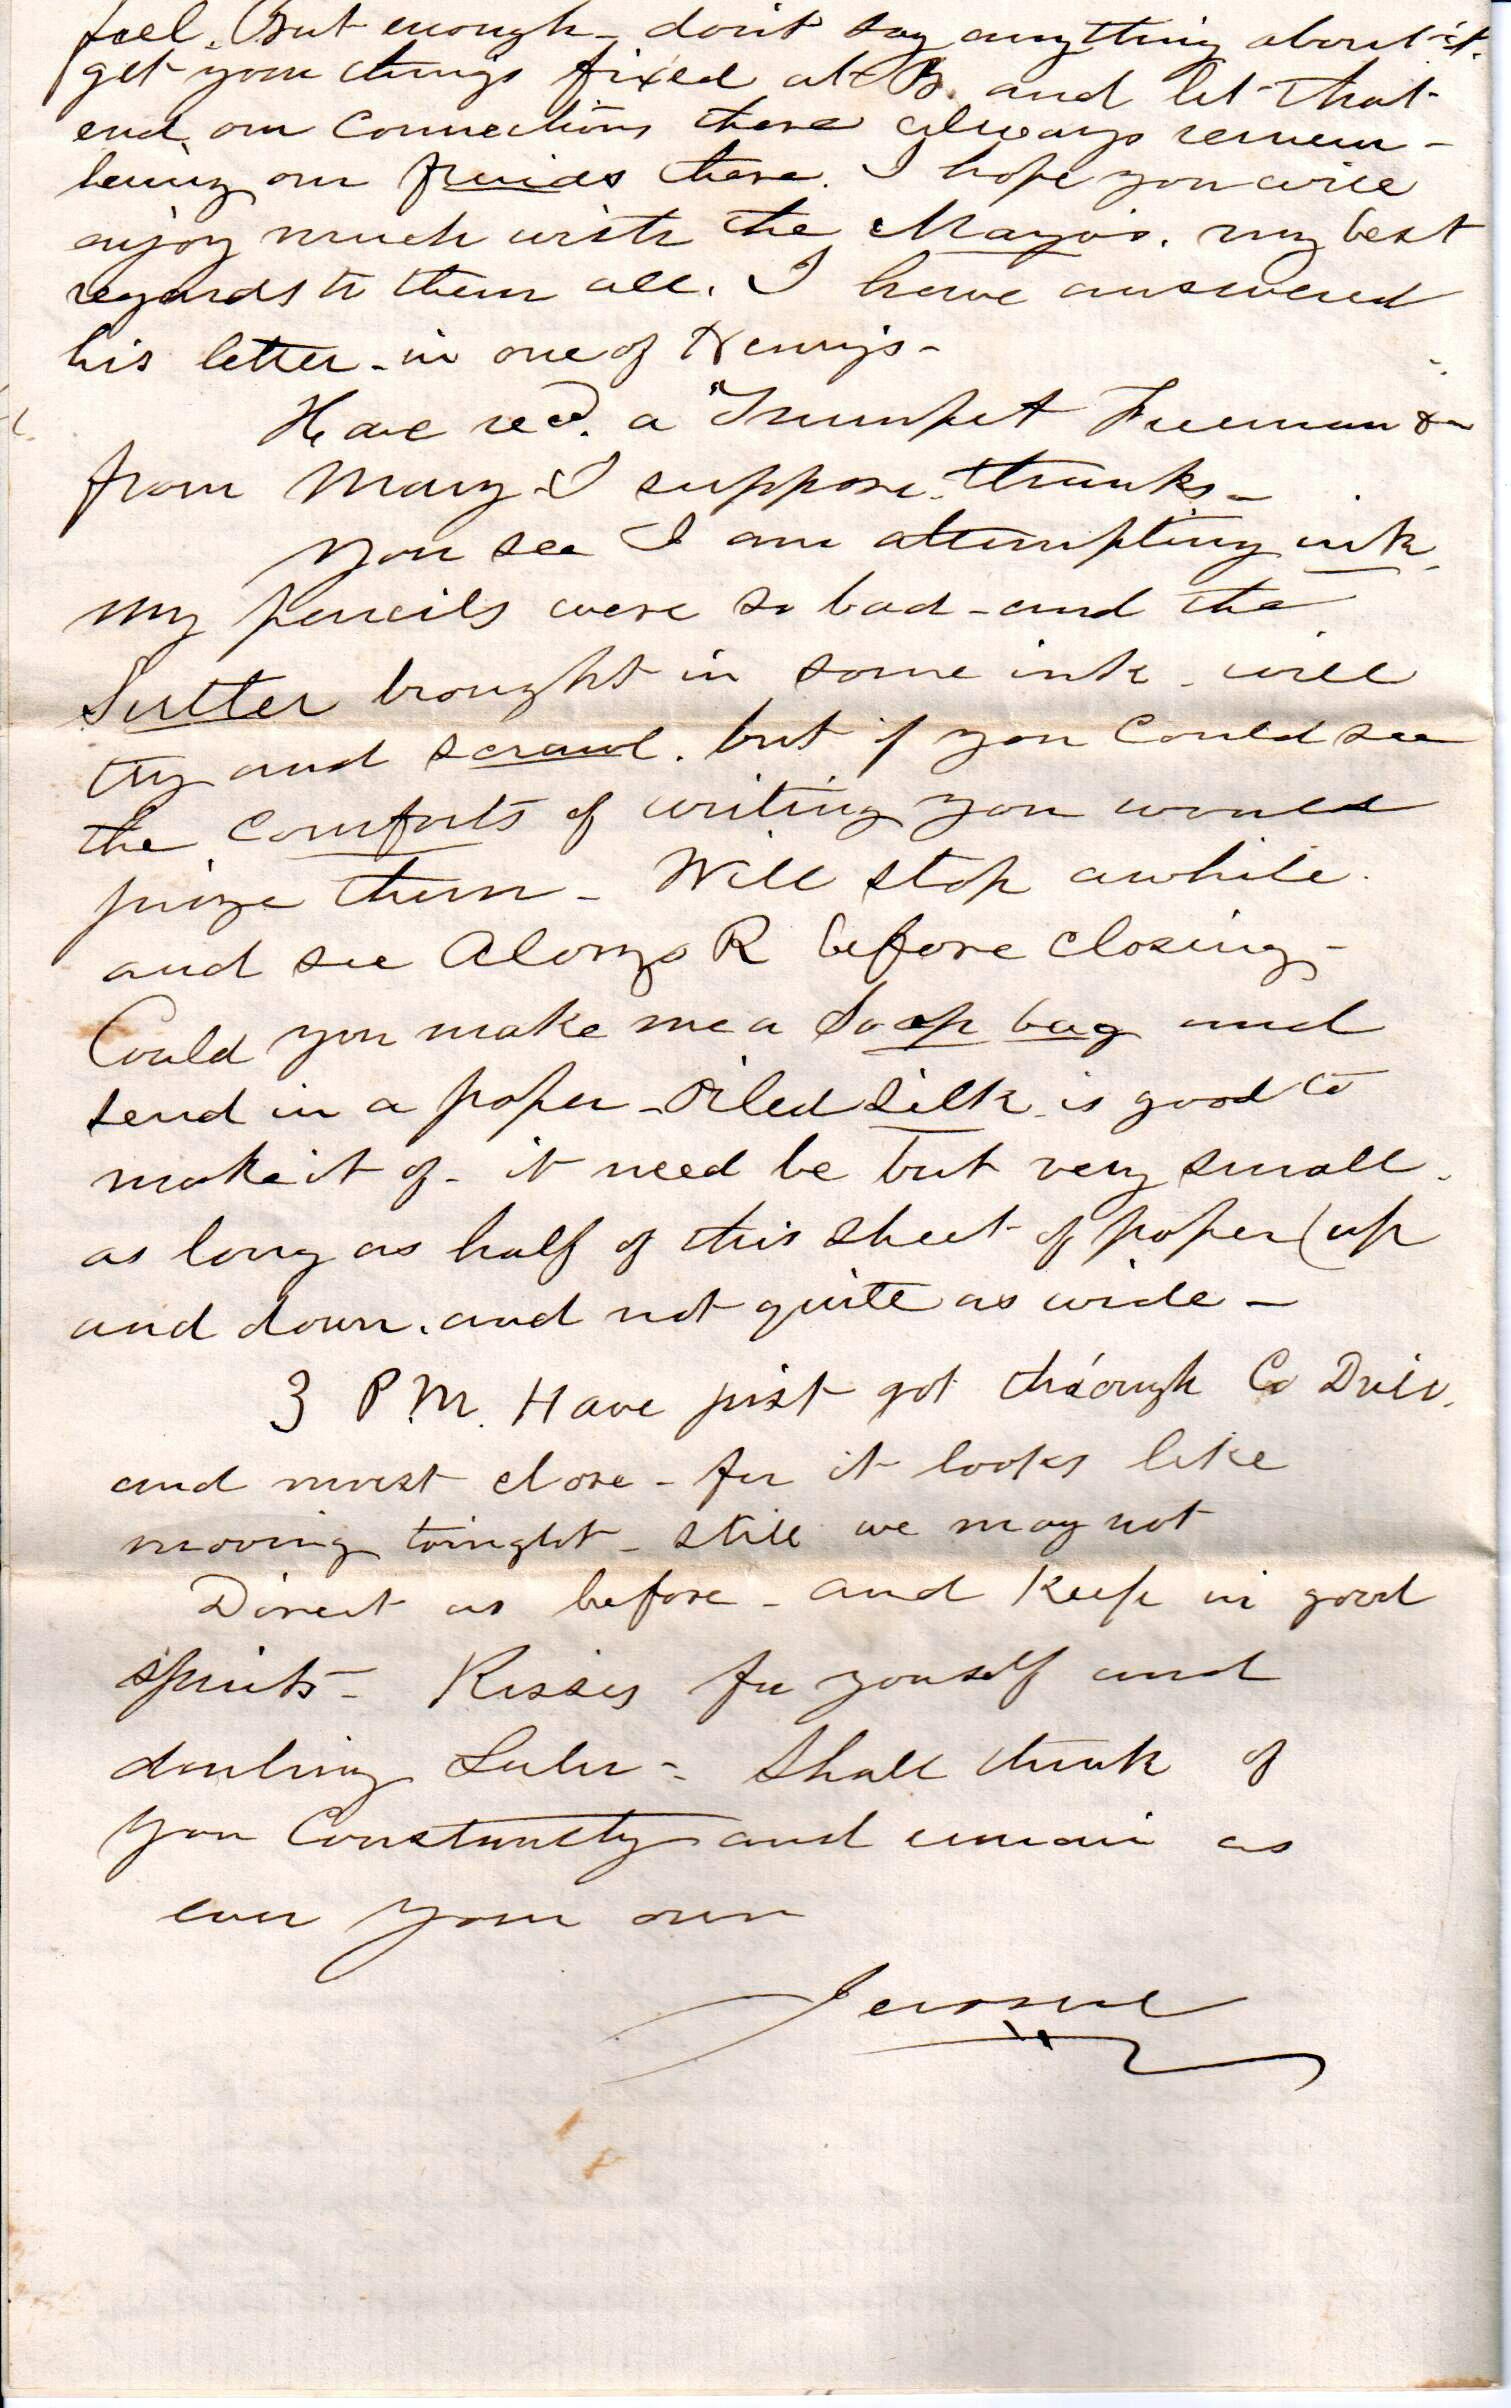 feel. But enough - don't say anything about it.
get your things fixed at B. and let that
end our connections there always remem-
bering our friends there. I hope you will
enjoy much with the Mayo's. my best
regards to them all. I have answered
his letter - in one of Henry's -
Have recd. a "Trumpet Freeman &c
from Mary - I suppose. thanks -
You see I am attempting ink.
my pencils were so bad - and the
Sutler brought in some ink. will
try and scrawl. but if you could see
the comforts of writing you would
prize them - Will stop awhile.
and see Alonzo R before closing -
Could you make me a Soap bag and
send in a paper - Oiled silk is good to
make it of - it need be but very small.
as long as half of this sheet of paper (up
and down. and not quite as wide -
3 P.M. Have just got through Co Drill.
and must close - for it looks like
moving tonight - still we may not
Direct as before - and keep in good
spirits - Kisses for yourself and
darling Lulu - Shall think of
you Constantly and remain as
ever your own
Jerome